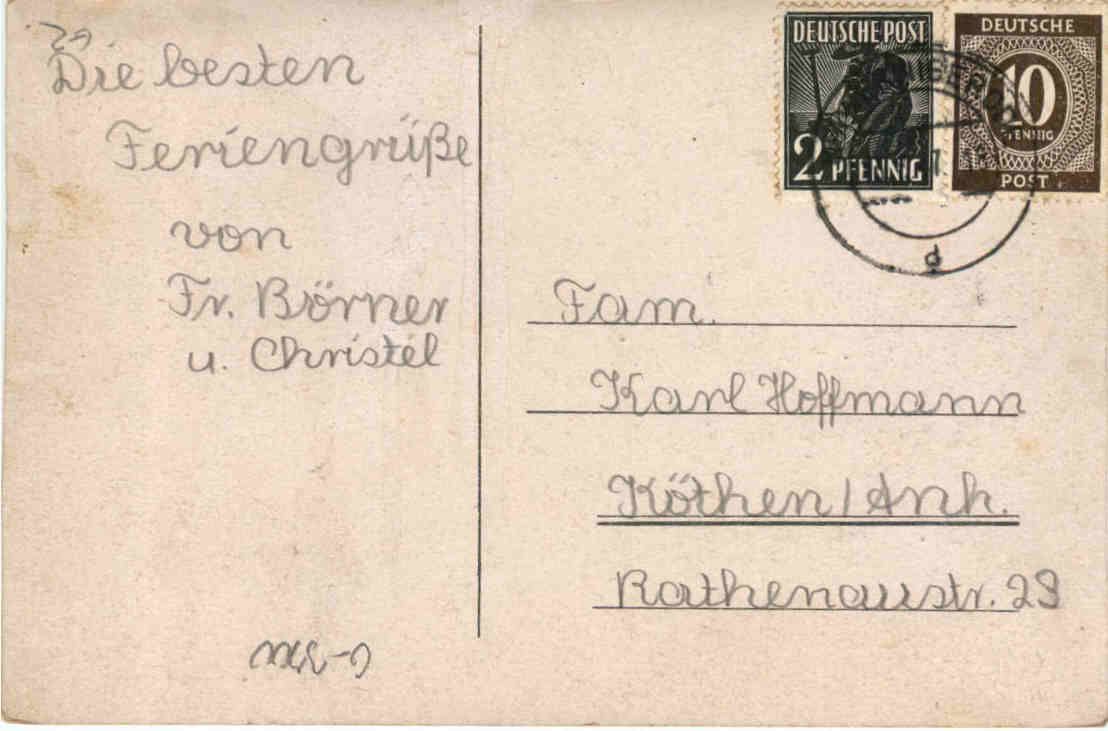 Die besten
Feriengrüße
von
Fr. Börner
u. Christel
DEUTSCHE POST
2 PFENNIG
DEUTSCHE
10
PFENNIG
POST
d
Fam.
Karl Hoffmann
Köthen/Anh.
Rathenaustr. 29